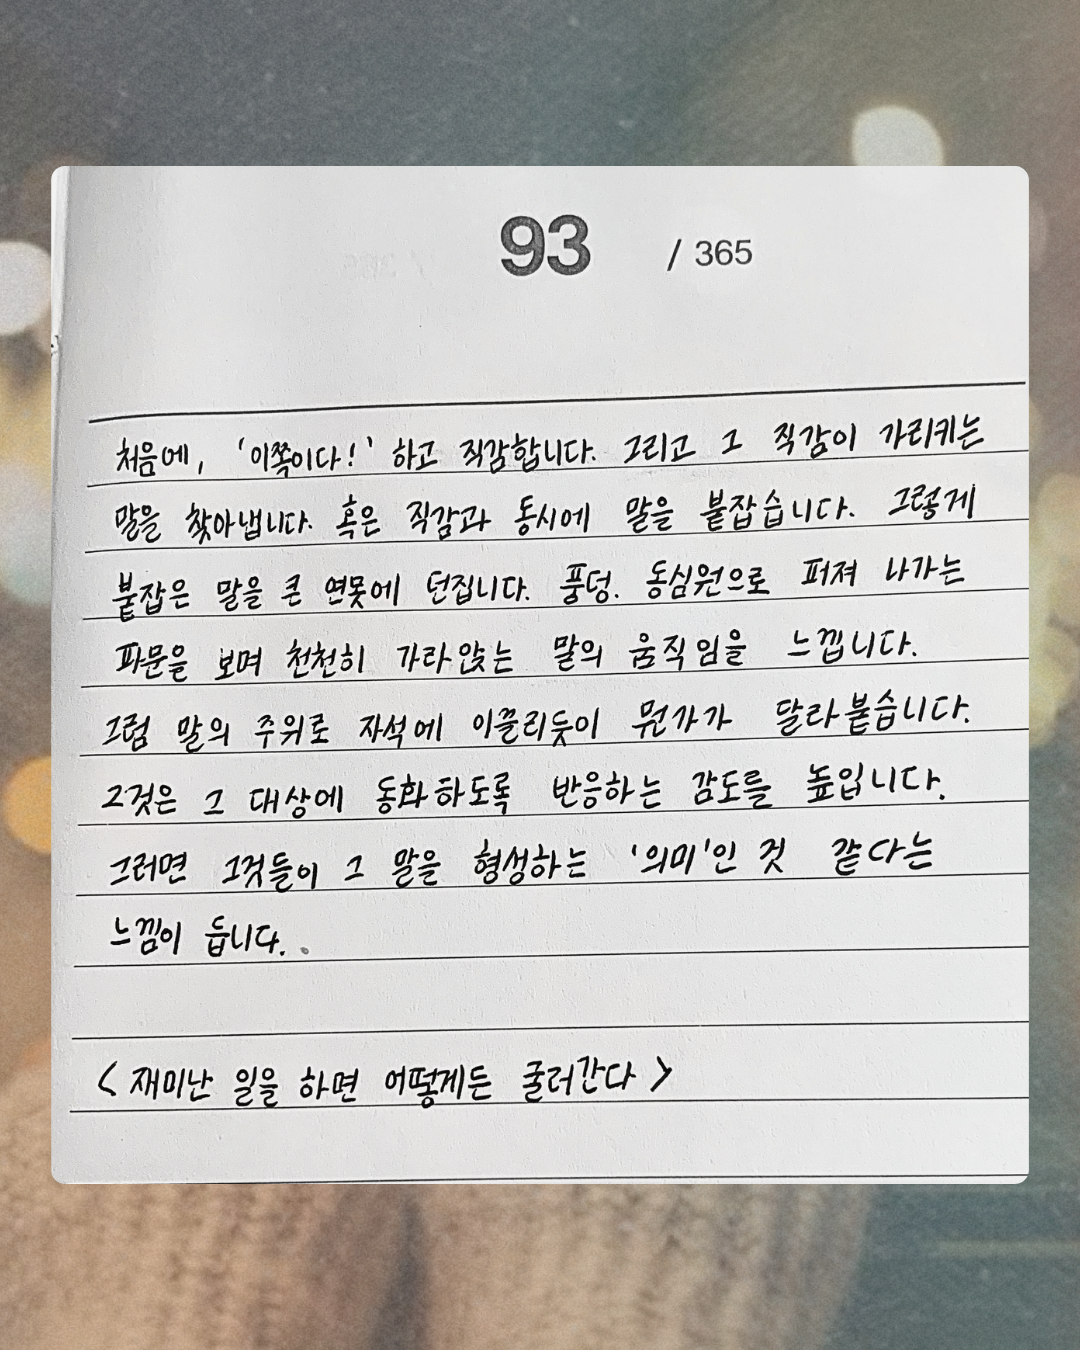 93 / 365
처음에, '이쪽이다!' 하고 직감합니다. 그리고 그 직감이 가리키는
말을 찾아냅니다. 혹은 직감과 동시에 말을 붙잡습니다. 그렇게
붙잡은 말을 큰 연못에 던집니다. 풍덩. 동심원으로 퍼져 나가는
파문을 보며 천천히 가라앉는 말의 움직임을 느낍니다.
그럼 말의 주위로 자석에 이끌리듯이 뭔가가 달라붙습니다.
그것은 그 대상에 동화하도록 반응하는 감도를 높입니다.
그러면 그것들이 그 말을 형성하는 '의미'인 것 같다는
느낌이 듭니다.
<재미난 일을 하면 어떻게든 굴러간다>